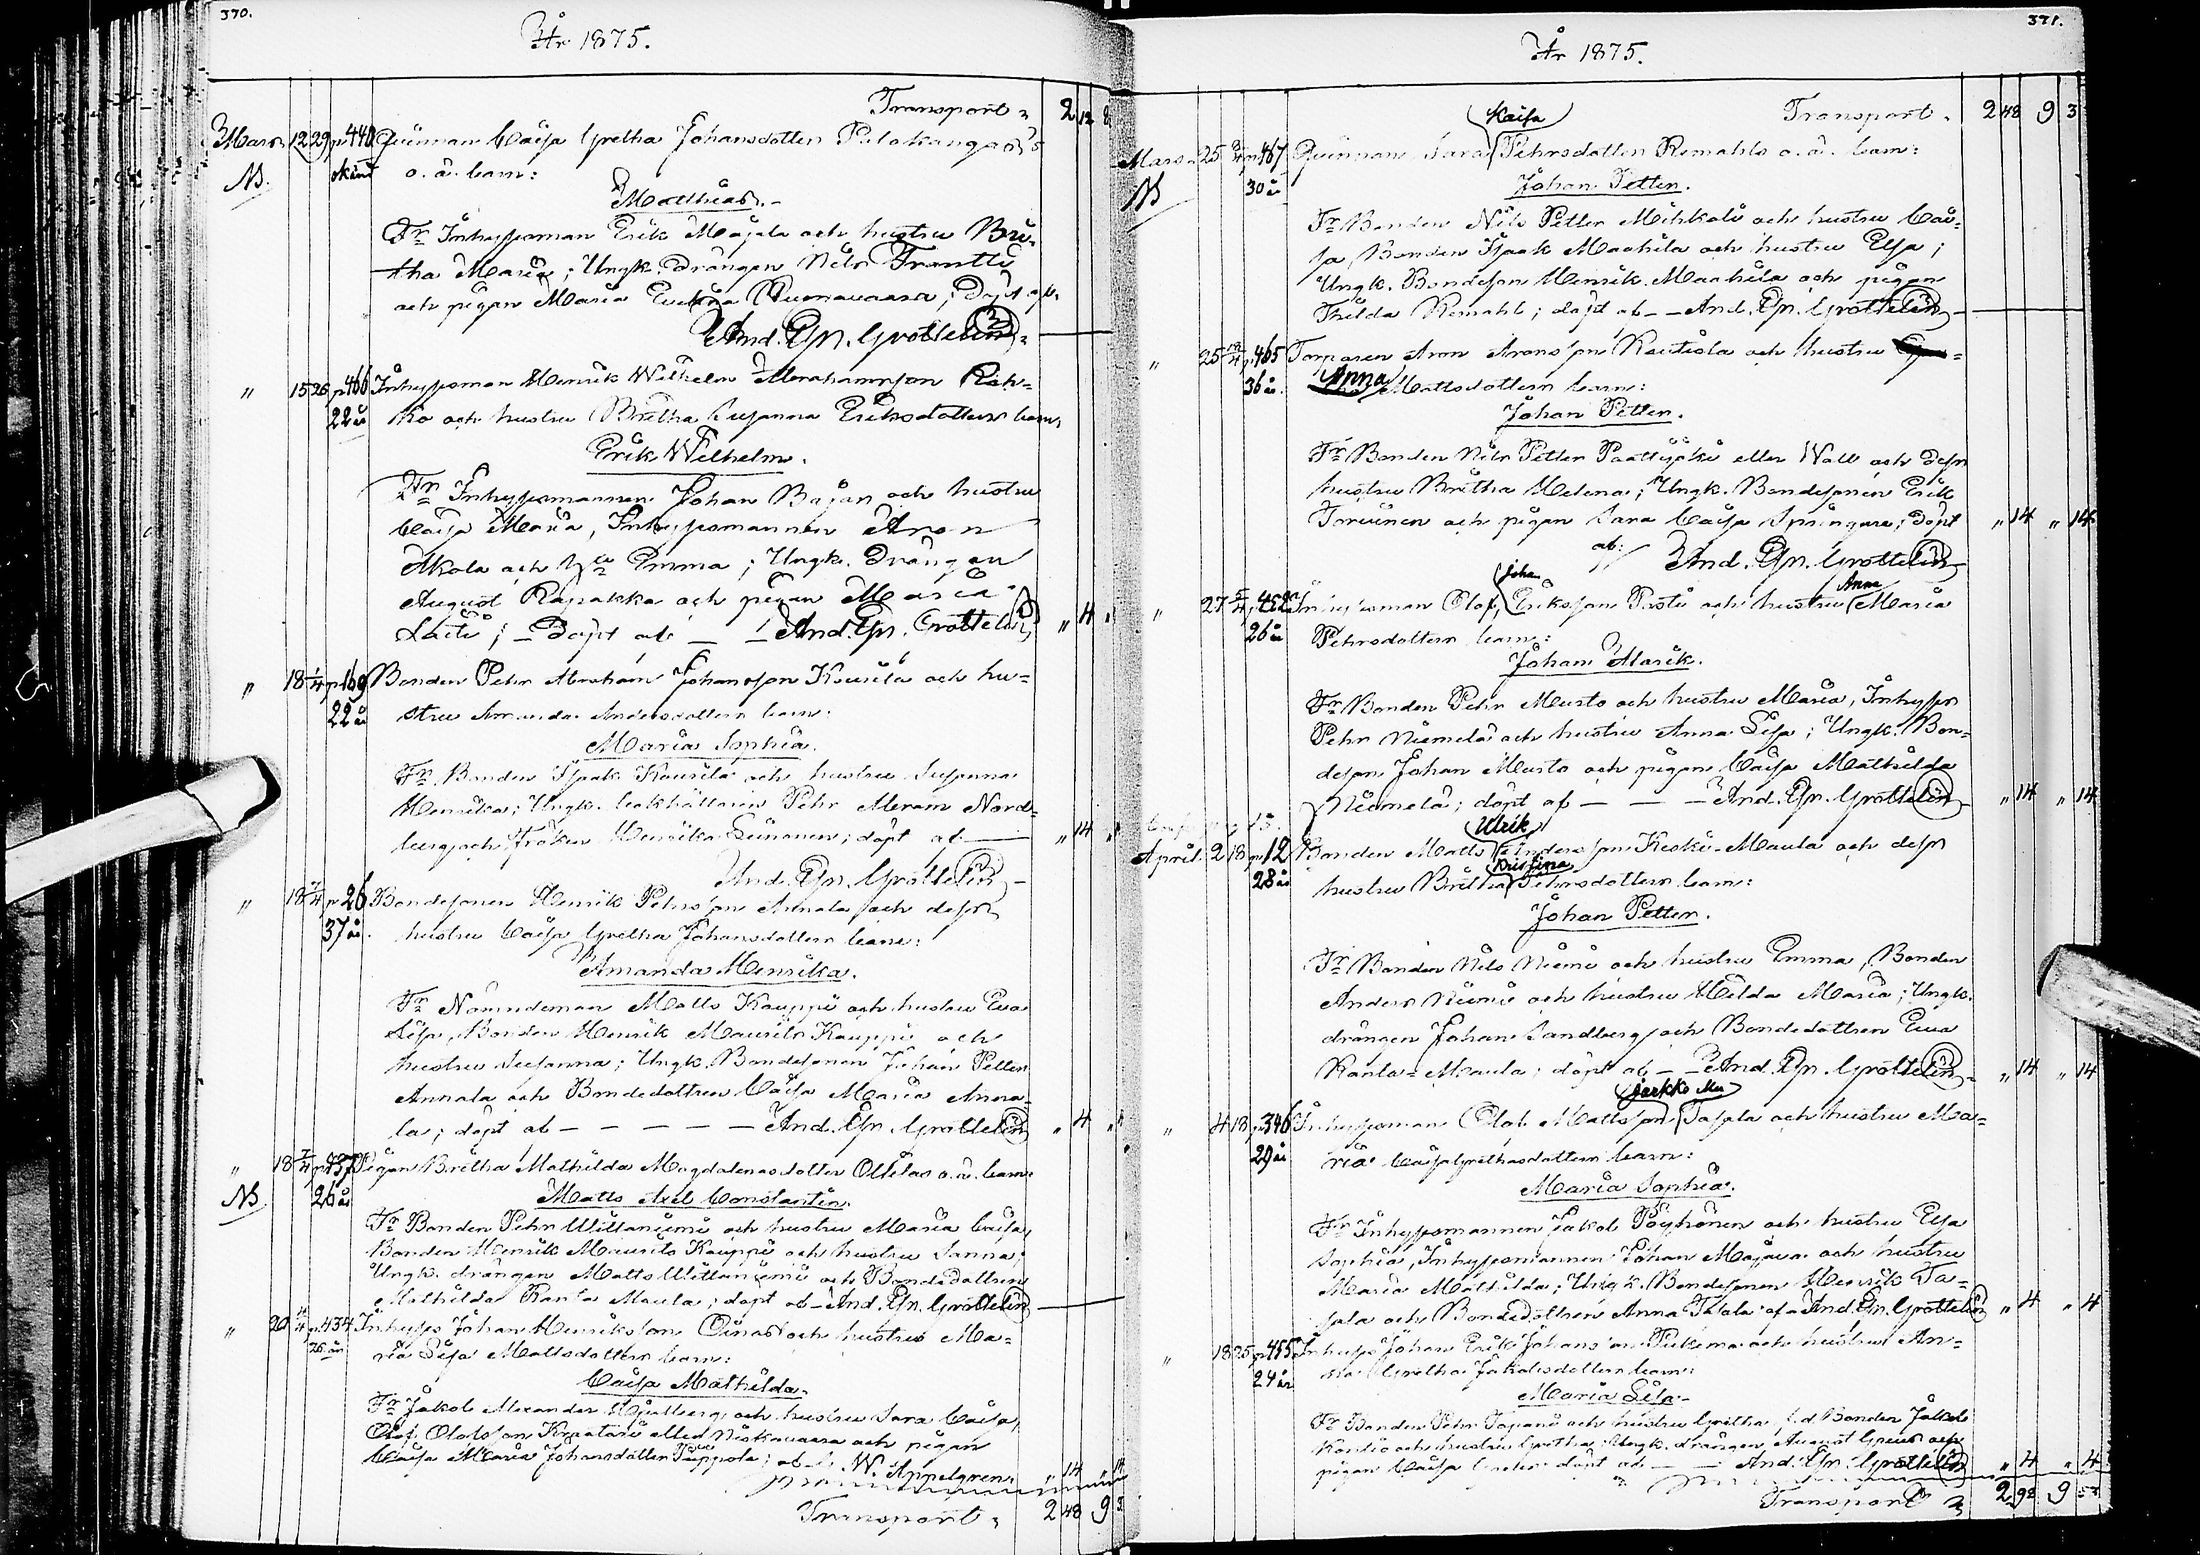 370.
År 1875.
Transport 2 12 8
Mars 12 29 p 440 Qvinnan Caisa Gretha Johansdotter Palokangas's
NB. okänt o. ä. barn:
Matthias.
Fr Inhysesman Erik Majala och hustru Bri-
tha Maria; Ungk. drängen Nils Frantti
och pigan Maria Evelina Vuomavaara; Döpt af.
And. Gn. Grotthelin
" 15 26 p 466 Inhysesman Henrik Wilhelm Abrahamsson
22 år ko och hustru Britha Susanna Eriksdotters barn
Erik Wilhelm.
Fr Inhysesmannen Johan Bajan och hustru
Caisa Maria, Inhysesmannen Aron
Akola och h:u Emma; Ungk. Drängen
August Rapakka och pigan Maria
Laiti; Döpt af And. Gn. Grotthelin " 4 "
" 18 1/4 p 169 Bonden Pehr Abraham Johansson Kourila och hu-
22 år stru Amanda Andersdotters barn:
Maria Sophia.
Fr. Bonden Isaak Kourila och hustru Susanna
Henrika; Ungk. Pehr Abram Nord-
berg och Fröken Henrika; döpt af " 14 "
And. Gn. Grotthelin
" 18 1/4 p 26 Bondesonen Henrik Pehrsson Annala och dess
37 år. hustru Caisa Gretha Johansdotters barn:
Amanda Henrika.
Fr Nämndeman Matts Kauppi och hustru Eva
Lisa, Bonden Henrik Maurits Kauppi och
hustru Susanna; Ungk. Bondesonen Johan Petter
Annala och Bondedottren Caisa Maria Anna-
la; döpt af And. Gn. Grotthelin " 4 "
" 18 p 437 Pigan Britha Mathilda Magdalenasdotter Ollilas o.ä. barn:
NB 26 år Matts Axel Constantin.
Fr Bonden Pehr Uillaniemi och hustru Maria Caisa,
Bonden Henrik Maurits Kauppi och hustru Sanna;
Ungk. drängen Matts Uillaniemi och Bondedottren
Mathilda Ranta Maula; döpt af And. Gn. Grotthelin
" 20 p 434 Inhyses Johan Henriksson Oinas och hustru Ma-
26 år ria Lisa Mattsdotters barn:
Caisa Mathilda.
Fr Jakob Alexander och hustru Sara Caisa,
Olof Olofsson Niskavaara och pigan
Caisa Maria Johansdotter; af W. Appelgren. " 14
Transport 2 48 9 3
371.
År 1875.
Transport 2 48 9 3
Kaisa
Mars 25 p 467 Qvinnan Sara Pehrsdotter Remahls o.ä. barn:
NB 30 år Johan Petter.
Fr Bonden Nils Petter Mihkali och hustru Cai-
sa, Bonden Isaak Maahila och hustru Elsa;
Ungk. Bondeson Henrik Maahila och pigan
Thilda Remahl; döpt af And. Gn. Grotthelin
" 25 p 465 Torparen Aron Aronsson Rautiola och hustru
36 år. Anna Mattsdotters barn:
Johan Petter.
Fr Bonden Nils Petter Paattijoki eller Wall och dess
hustru Britha Helena; Ungk. Bondesonen Erik
Torvinen och pigan Sara Caisa Springare; döpt " 14 " 14
af: And. Gn. Grotthelin
Joha
Anna
" 27 p 452 Inhysesman Olof Eriksson och hustru Maria
26 år Pehrsdotters barn:
Johan Alarik.
Fr Bonden Pehr Musto och hustru Maria, Inhyses
Pehr Niemelä och hustru Anna Lisa; Ungk. Bon-
deson Johan Musto och pigan Caisa Mathilda
Niemelä; döpt af And. Gn. Grotthelin " 14 " 14
Ulrik
April 2 18 p 12 Bonden Matts Andersson Keski-Maula och dess
Kristina
28 år hustru Britha Pehrsdotters barn:
Johan Petter.
Fr Bonden Nils Niemi och hustru Emma, Bonden
Anders Niemi och hustru Hilda Maria; Ungk.
drängen Johan Sandberg och Bondedottren Eva
Ranta-Maula; döpt af And. Gn. Grotthelin " 14 " 14
" 4 18 p 346 Inhysesman Olof Mattsson Tapala och hustru Ma-
29 år ria Caisa Grethasdotters barn:
Maria Sophia.
Fr Inhysesmannen Jakob Pöyhönen och hustru Elsa
Sophia, Inhysesmannen Johan Majava och hustru
Maria Mathilda; Ungk. Bondesonen Henrik Ta-
pala och Bondedottren Anna Talala af And. Gn. Grotthelin " 4 " 4
" 18 25 p 455 Inhyses Johan Erik Johansson och hustru An-
24 år na Gretha Jakobsdotters barn:
Maria Lisa
Fr Bonden Pehr och hustru Gretha, f.d. Bonden Jakob
Kontio och hustru Gretha; Ungk. drängen August och
pigan Caisa döpt af And. Gn. Grotthelin " 4 " 4
Transport 2 92 9 53